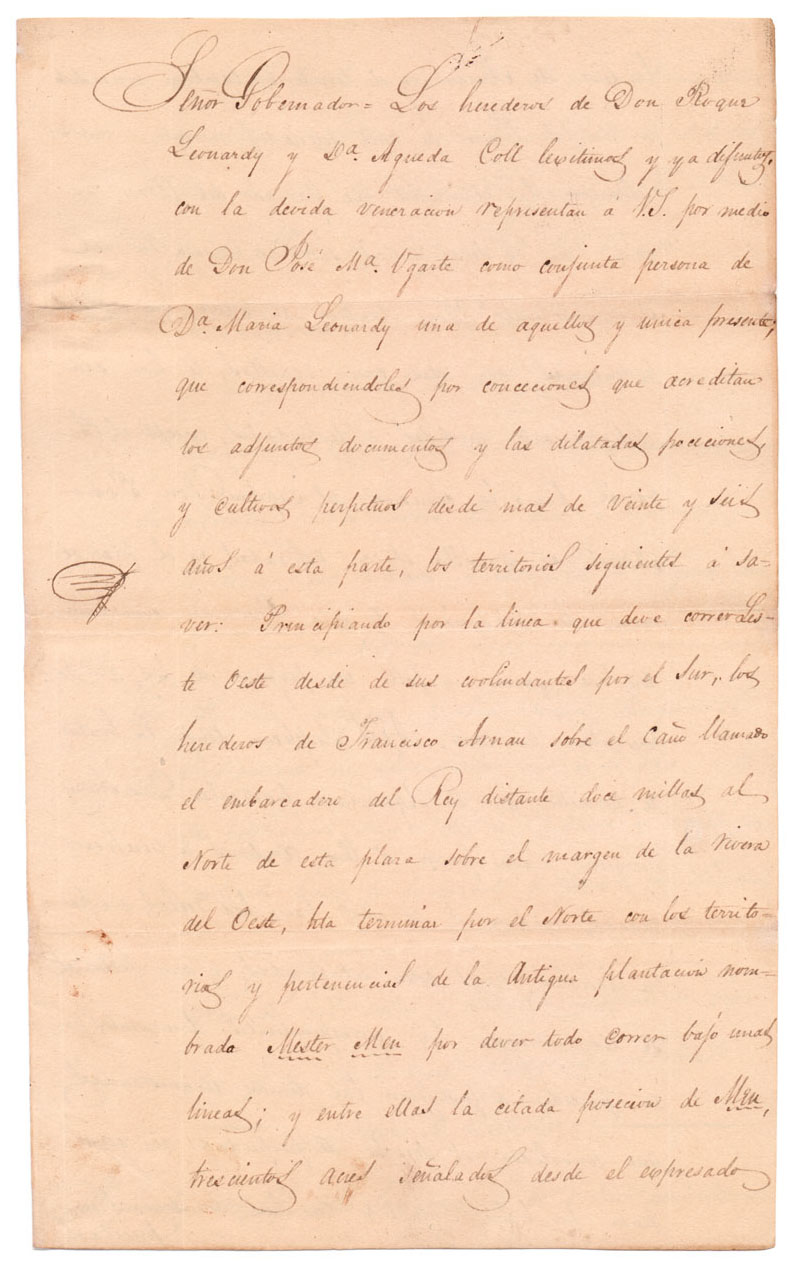 Señor Gobernador = Los herederos de Don Roque
Leonardy y Da. Agueda Coll lexitimos y ya difuntos,
con la devida veneracion representan á V.S. por medio
de Don José Ma. Ugarte como conjunta persona de
Da. Maria Leonardy una de aquellos y unica presente;
que correspondiendoles por conceciones que acreditan
los adjuntos documentos y las dilatadas poceciones,
y cultivos perpetuos desde mas de veinte y seis
años á esta parte, los territorios siguientes á sa-
ver: Principiando por la linea que deve correr Les-
te Oeste desde de sus colindantes por el Sur, los
herederos de Francisco Arnau sobre el caño llamado
el embarcadero del Rey distante doce millas al
Norte de esta plaza sobre el margen de la rivera
del Oeste, hta terminar por el Norte con los territo-
rios y pertenencias de la Antigua plantacion nom-
brada Mester Men por dever todo correr bajo unas
lineas; y entre ellas la citada posecion de Men,
trescientos acres señalados desde el expresado